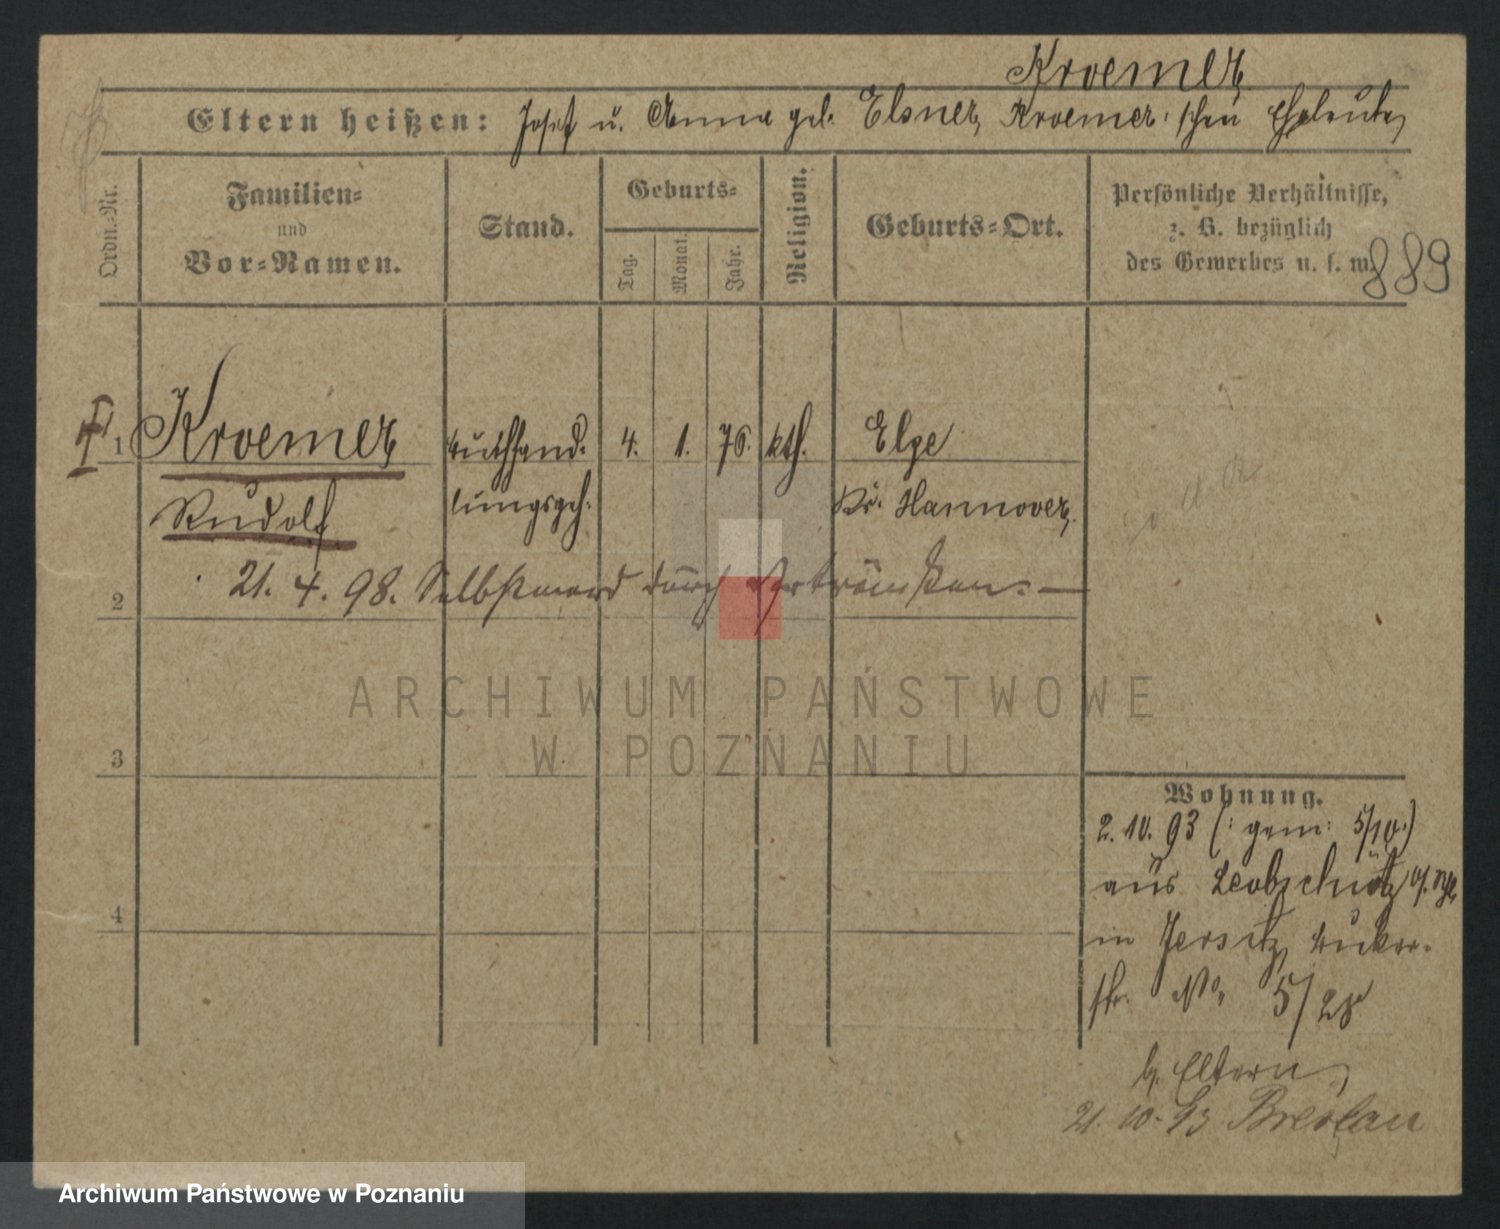 Kroemer
Eltern heißen: Josef u. Anna geb. Elsner, Kroemer'schen Eheleute
Ordn.-Nr.
Familien-
und
Vor-Namen.
Stand.
Geburts-
Tag.
Monat.
Jahr.
Religion.
Geburts-Ort.
Persönliche Verhältnisse,
z. B. bezüglich
des Gewerbes u. s. w.
889
1
Kroemer
Rudolf
4.
1.
76.
kth.
Elze
Kr. Hannover,
21. 4. 98. Selbstmord durch
2
ARCHIWUM PAŃSTWOWE
W POZNANIU
3
4
Wohnung.
2.10.93 (: gem: 5/10:)
aus Leobschütz
in Jersitz,
str. No. 5/
b. Eltern,
21.10.93 Breslau
Archiwum Państwowe w Poznaniu